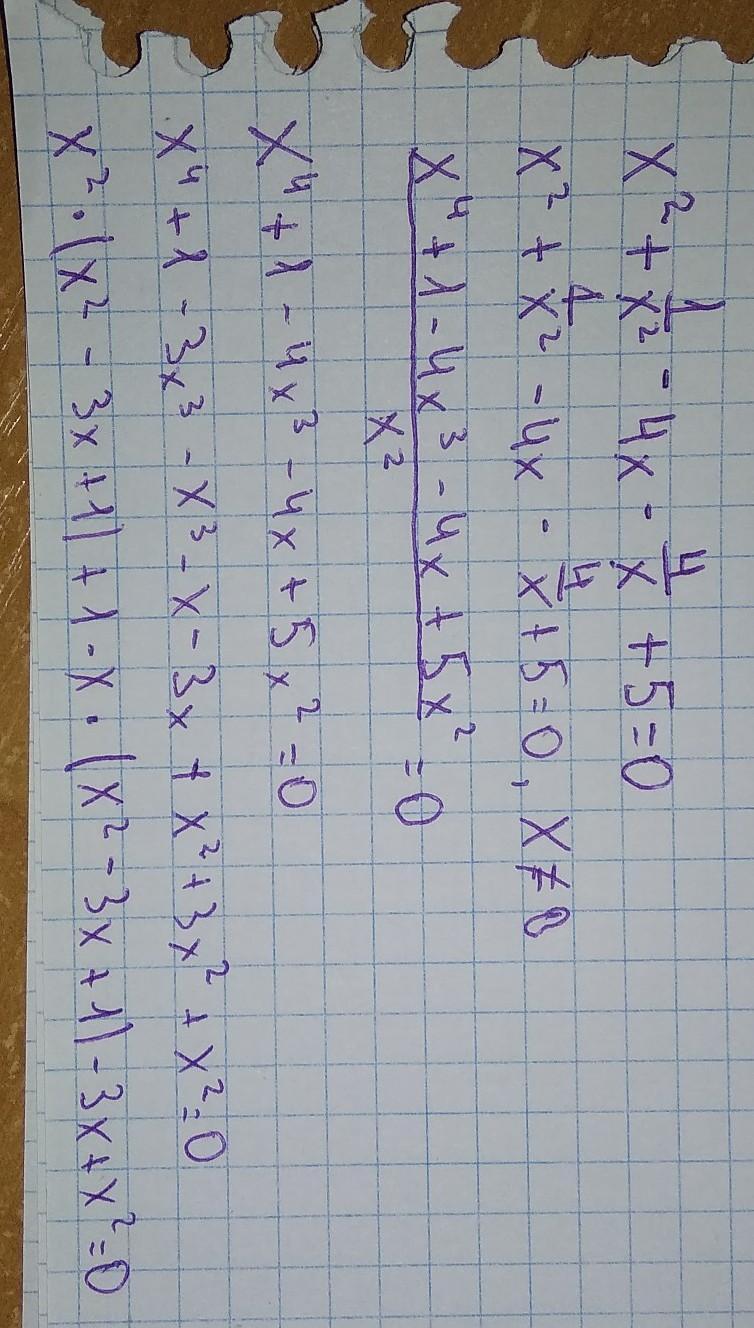 x² + 1/x² - 4x - 4/x + 5 = 0
x² + 1/x² - 4x - 4/x + 5 = 0, x ≠ 0
(x⁴ + 1 - 4x³ - 4x + 5x²)/x² = 0
x⁴ + 1 - 4x³ - 4x + 5x² = 0
x⁴ + 1 - 3x³ - x³ - x - 3x + x² + 3x² + x² = 0
x² · (x² - 3x + 1) + 1 - x · (x² - 3x + 1) - 3x + x² = 0